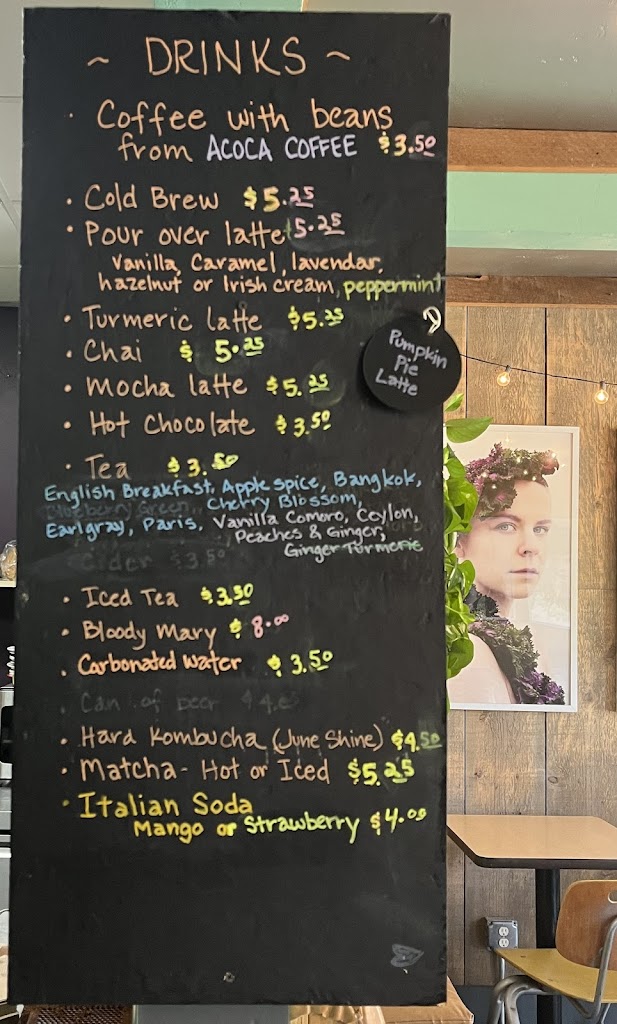 ~ DRINKS ~
· Coffee with beans
from ACOCA COFFEE $3.50
· Cold Brew $5.25
· Pour over latte 5.25
Vanilla, Caramel, lavendar,
hazelnut or Irish cream, peppermint
· Turmeric latte $5.25
· Chai $5.25
Pumpkin
Pie
Latte
· Mocha latte $5.25
· Hot Chocolate $3.50
· Tea $3.50
English Breakfast, Apple spice, Bangkok,
Blueberry Green, Cherry Blossom,
Earlgray, Paris, Vanilla Comoro, Ceylon,
Peaches & Ginger,
Ginger Turmeric
Cider $3.50
· Iced Tea $3.50
· Bloody Mary $8.00
· Carbonated water $3.50
Can of beer
· Hard Kombucha (June Shine) $4.50
· Matcha - Hot or Iced $5.25
· Italian Soda
Mango or Strawberry $4.00